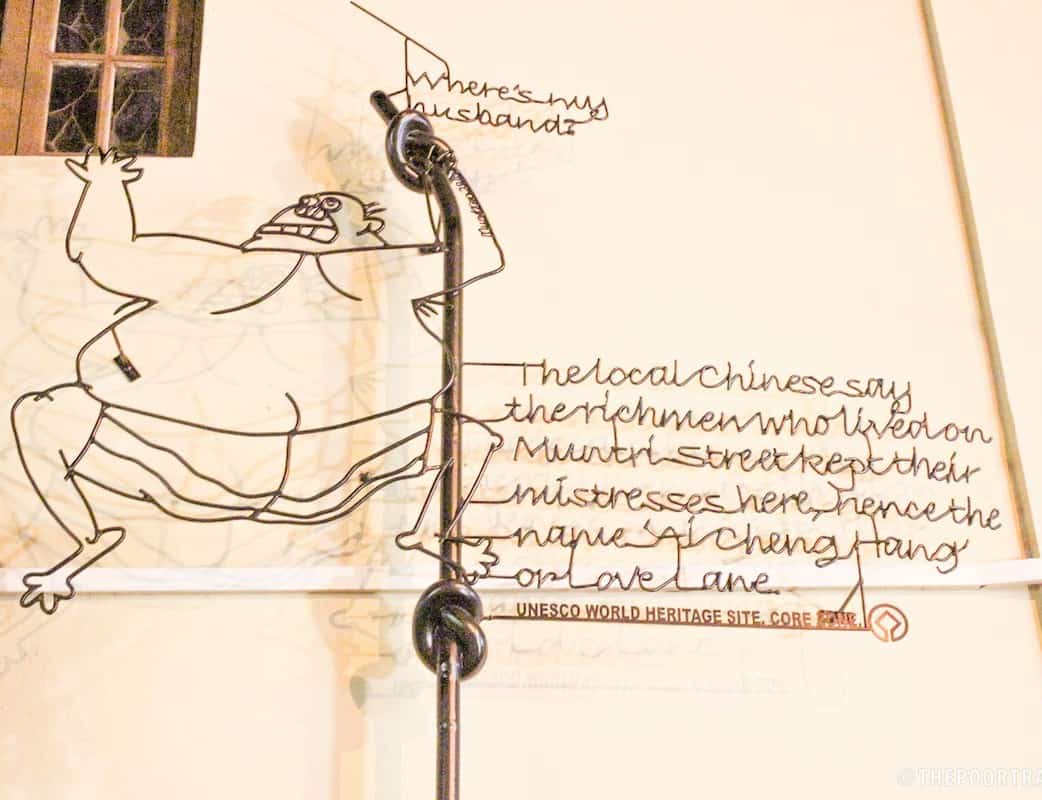 Where's my
husband?
The local Chinese say
the rich men who lived on
Muntri Street kept their
mistresses here, hence the
name 'Ai Cheng Hang'
or Love Lane.
UNESCO WORLD HERITAGE SITE, CORE ZONE.
©THEPOORTRA